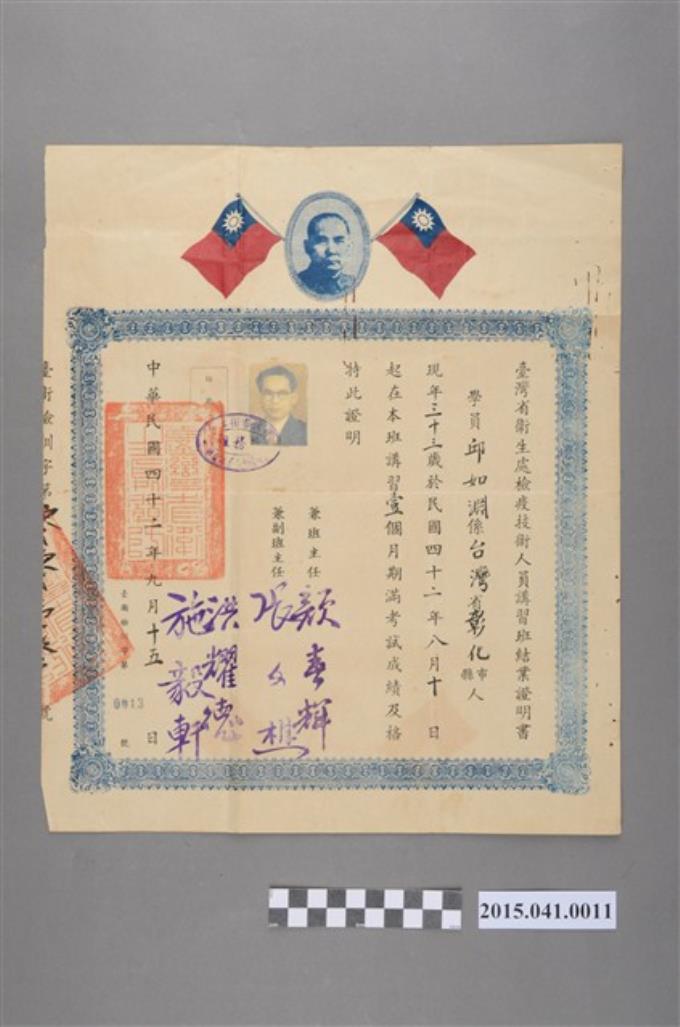 臺灣省衛生處檢疫技術人員講習班結業證明書
學員邱如淵係台灣省彰化市縣人
現年三十三歲於民國四十二年八月十日
起在本班講習壹個月期滿考試成績及格
特此證明
兼班主任 顏春輝
兼副班主任
洪耀德
施毅軒
中華民國四十二年九月十五日
0013
號
臺衛檢訓字第
號
2015.041.0011